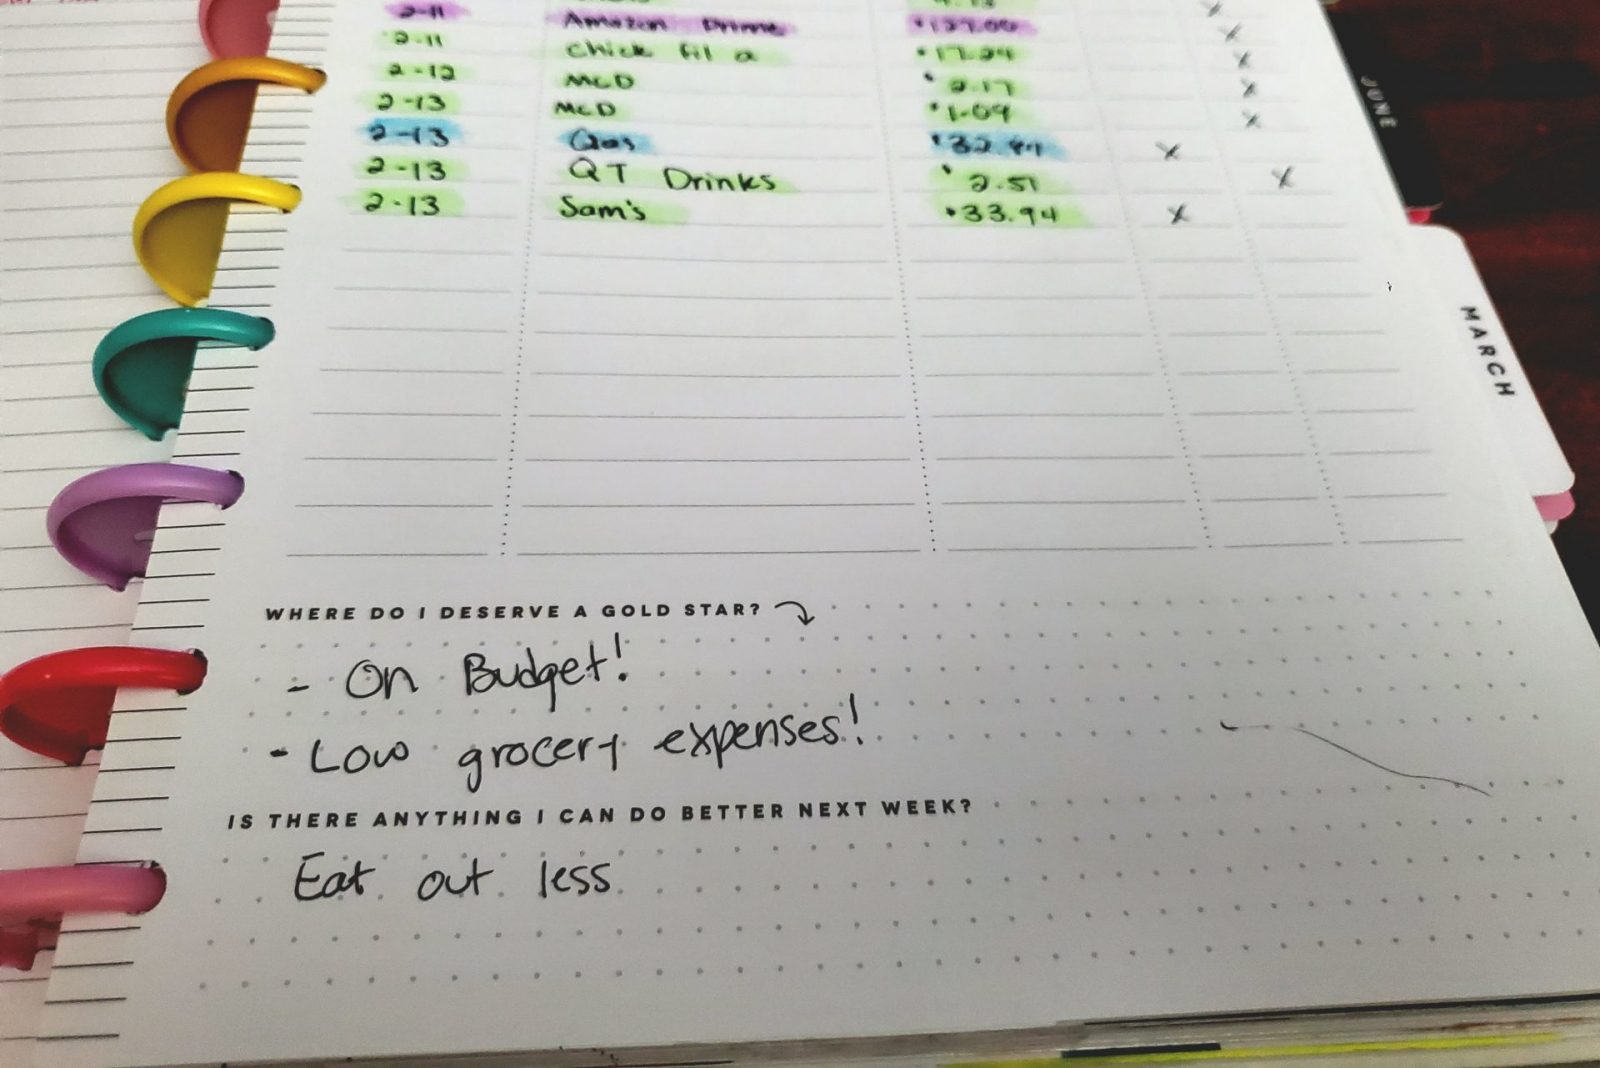 2-11 Amazon Prime
2-11 Chick fil a $17.24
2-12 McD $2.17
2-13 McD $1.09
2-13 Gas X
2-13 QT Drinks $2.51 X
2-13 Sam's $33.94 X
JUNE
MARCH
WHERE DO I DESERVE A GOLD STAR?
- On Budget!
- Low grocery expenses!
IS THERE ANYTHING I CAN DO BETTER NEXT WEEK?
Eat out less